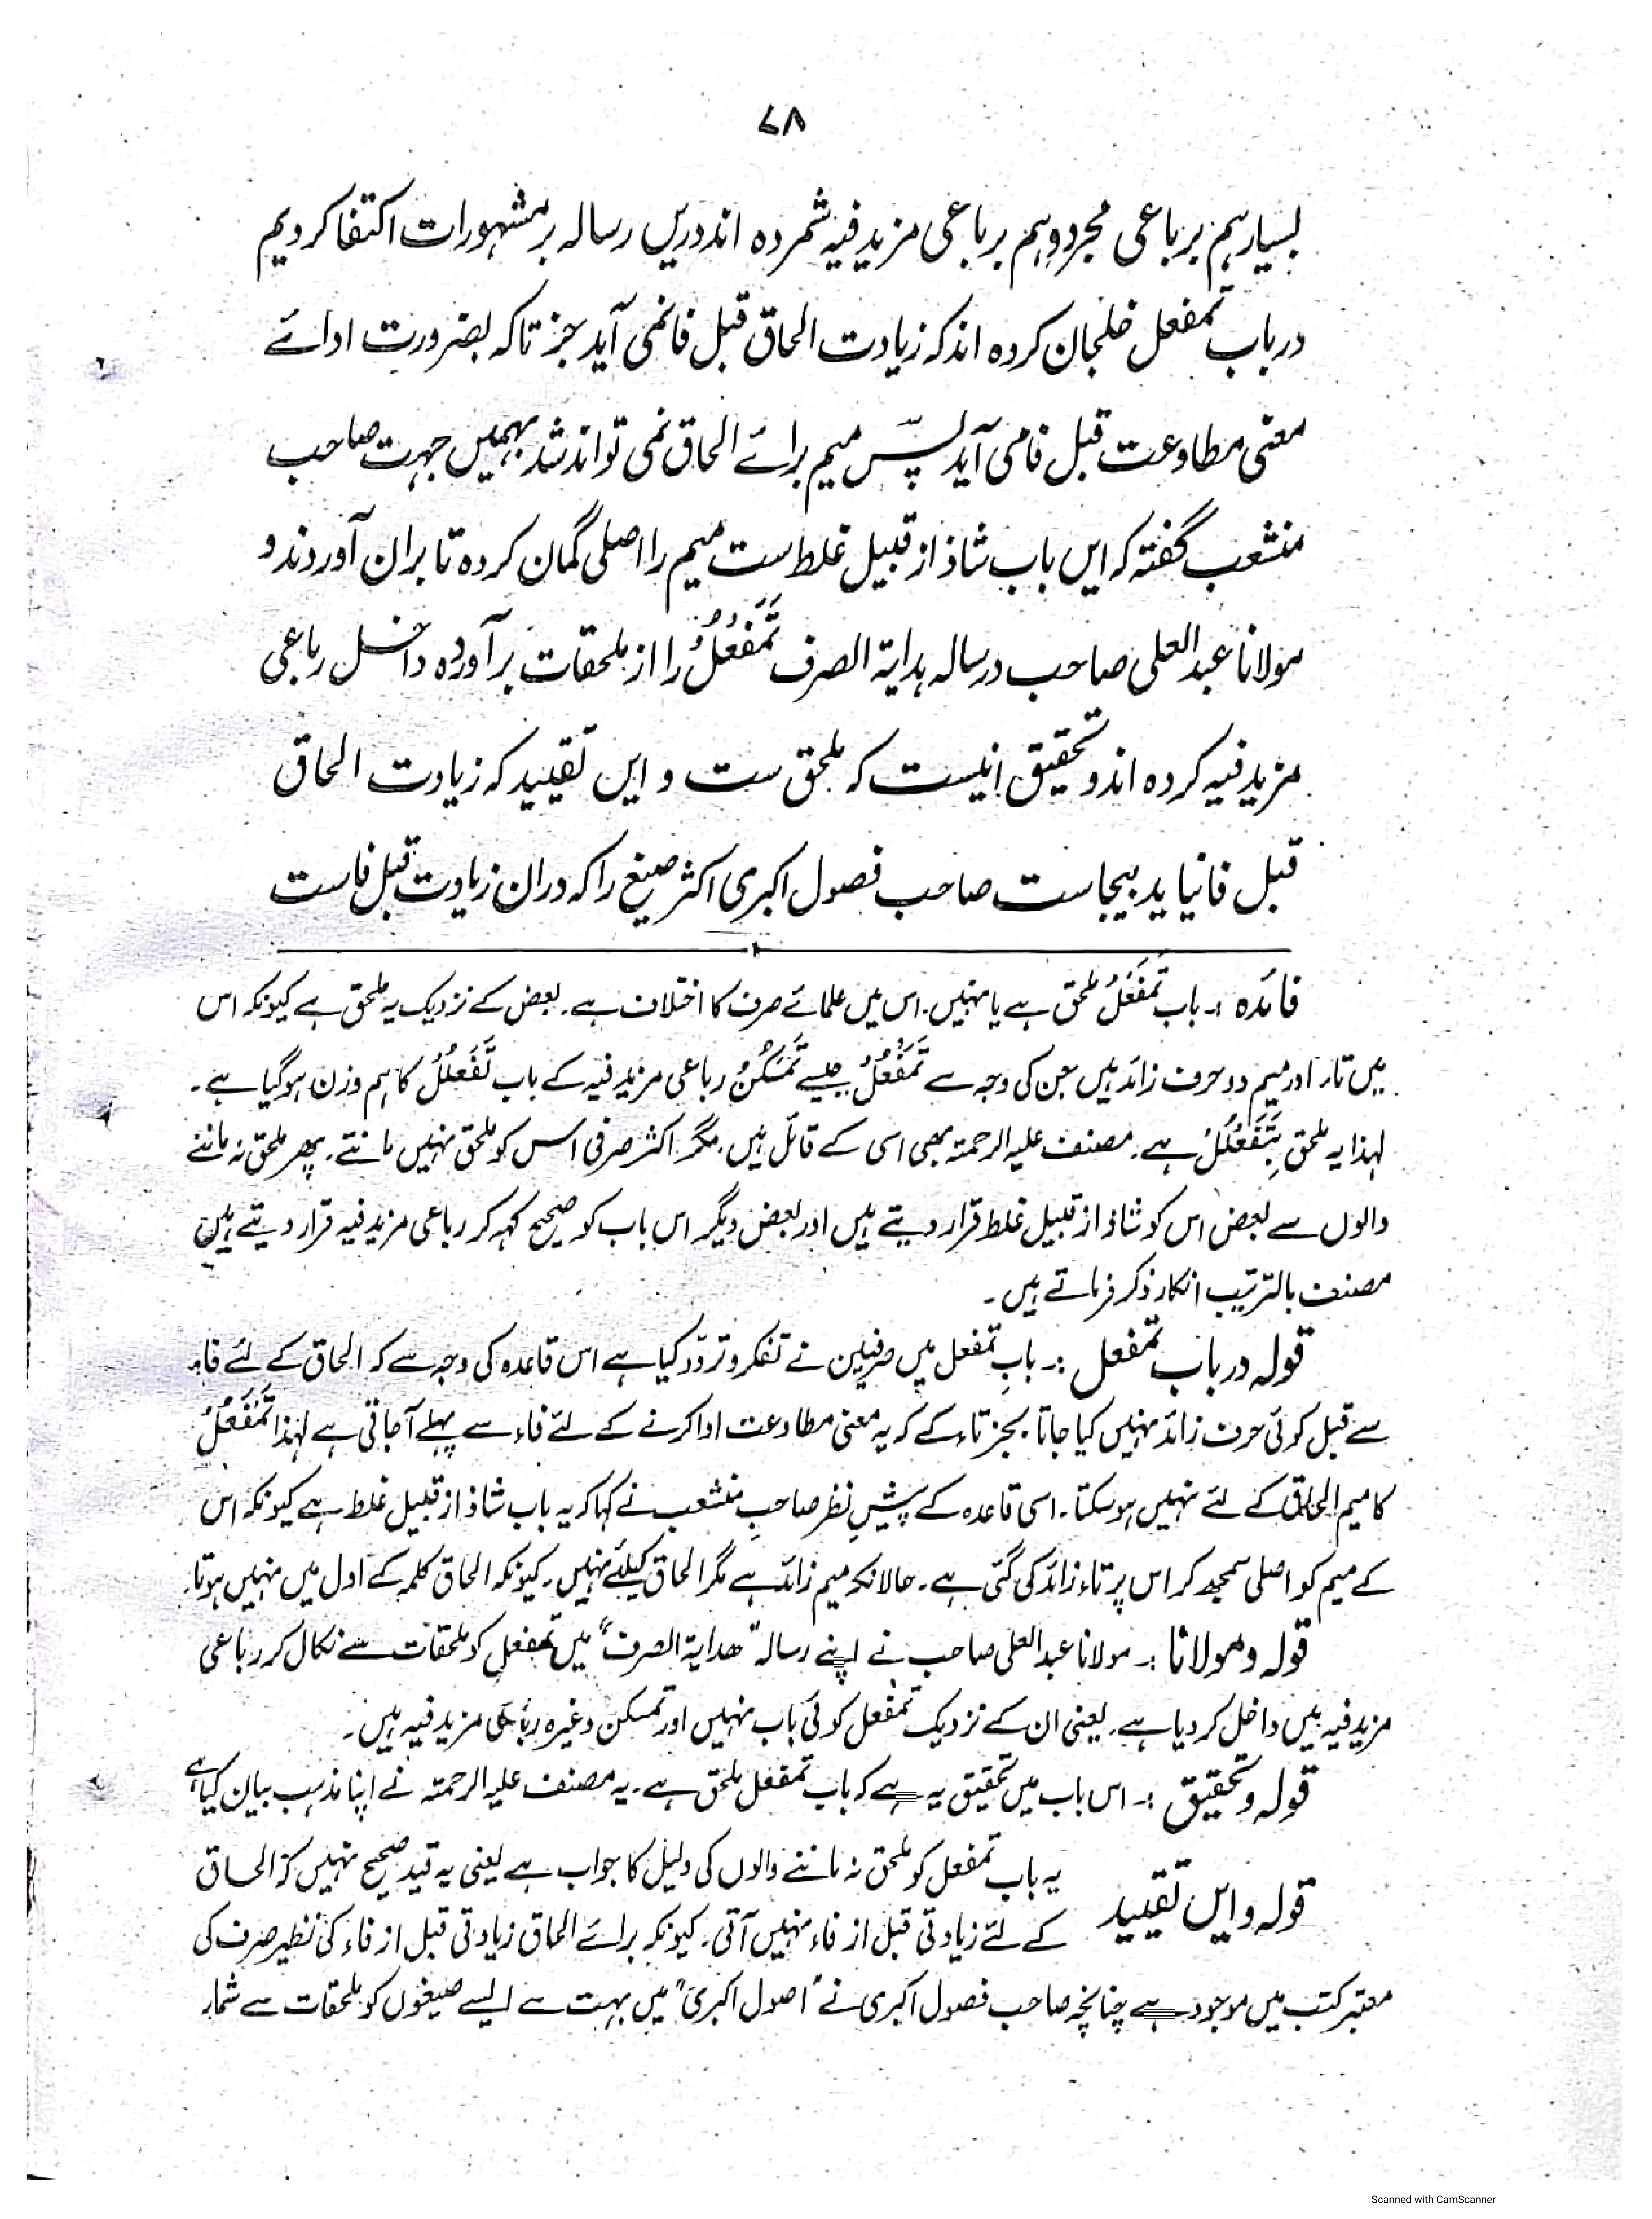 ۷۸
بسیار ہم بر باعی مجرد وہم بر باعی مزید فیہ شمردہ اند دریں رسالہ بر مشہورات اکتفا کردیم
در باب تمفعل خلجان کردہ اند کہ زیادت الحاق قبل فا نمی آید جز تا کہ بضرورت ادائے
معنی مطاوعت قبل فا می آید پس میم برائے الحاق نمی تواند شد بہمیں جہت صاحب
منشعب گفتہ کہ ایں باب شاذ از قبیل غلط ست میم را اصلی گمان کردہ تا بران آوردند و
مولانا عبد العلی صاحب در رسالہ ہدایۃ الصرف تَمَفْعُلٌ را از ملحقات بر آوردہ داخل رباعی
مزید فیہ کردہ اند و تحقیق اینست کہ ملحق ست و ایں تقیید کہ زیادت الحاق
قبل فا نیاید بیجاست صاحب فصول اکبری اکثر صیغ را کہ دران زیادت قبل فاست
فائدہ :۔ باب تَمَفْعَلُ ملحق ہے یا نہیں۔ اس میں علمائے صرف کا اختلاف ہے۔ بعض کے نزدیک یہ ملحق ہے کیونکہ اس
میں تاء اور میم دو حرف زائد ہیں جن کی وجہ سے تَمَفْعُلٌ جیسے تَمَسْکُنٌ رباعی مزید فیہ کے باب تَفَعْلُلٌ کا ہم وزن ہو گیا ہے۔
لہذا یہ ملحق بِتَفَعْلُلٌ ہے۔ مصنف علیہ الرحمۃ بھی اسی کے قائل ہیں۔ مگر اکثر صرفی اس کو ملحق نہیں مانتے۔ پھر ملحق نہ ماننے
والوں سے بعض اس کو شاذ از قبیل غلط قرار دیتے ہیں اور بعض دیگر اس باب کو صحیح کہہ کر رباعی مزید فیہ قرار دیتے ہیں
مصنف بالترتیب انکار ذکر فرماتے ہیں۔
قولہ در باب تمفعل :۔ بابِ تمفعل میں صرفیین نے تفکر و تردّد کیا ہے اس قاعدہ کی وجہ سے کہ الحاق کے لئے فاء
سے قبل کوئی حرف زائد نہیں کیا جاتا۔ بجز تاء کے کہ یہ معنی مطاوعت ادا کرنے کے لئے فاء سے پہلے آجاتی ہے لہذا تَمَفْعُلٌ
کا میم الحاق کے لئے نہیں ہو سکتا۔ اسی قاعدہ کے پیشِ نظر صاحبِ منشعب نے کہا کہ یہ باب شاذ از قبیل غلط ہے کیونکہ اس
کے میم کو اصلی سمجھ کر اس پر تاء زائد کی گئی ہے۔ حالانکہ میم زائد ہے مگر الحاق کیلئے نہیں۔ کیونکہ الحاق کلمہ کے اول میں نہیں ہوتا۔
قولہ و مولانا :۔ مولانا عبد العلی صاحب نے اپنے رسالہ "ھدایۃ الصرف" میں تمفعل کو ملحقات سے نکال کر رباعی
مزید فیہ میں داخل کر دیا ہے۔ یعنی ان کے نزدیک تمفعل کوئی باب نہیں اور تمسکن وغیرہ رباعی مزید فیہ ہیں۔
قولہ و تحقیق :۔ اس باب میں تحقیق یہ ہے کہ باب تمفعل ملحق ہے۔ یہ مصنف علیہ الرحمۃ نے اپنا مذہب بیان کیا ہے
قولہ و ایں تقیید یہ باب تمفعل کو ملحق نہ ماننے والوں کی دلیل کا جواب ہے یعنی یہ قید صحیح نہیں کہ الحاق
کے لئے زیادتی قبل از فاء نہیں آتی۔ کیونکہ برائے الحاق زیادتی قبل از فاء کی نظیر صرف کی
معتبر کتب میں موجود ہے چنانچہ صاحب فصول اکبری نے "اصول اکبری" میں بہت سے ایسے صیغوں کو ملحقات سے شمار
Scanned with CamScanner